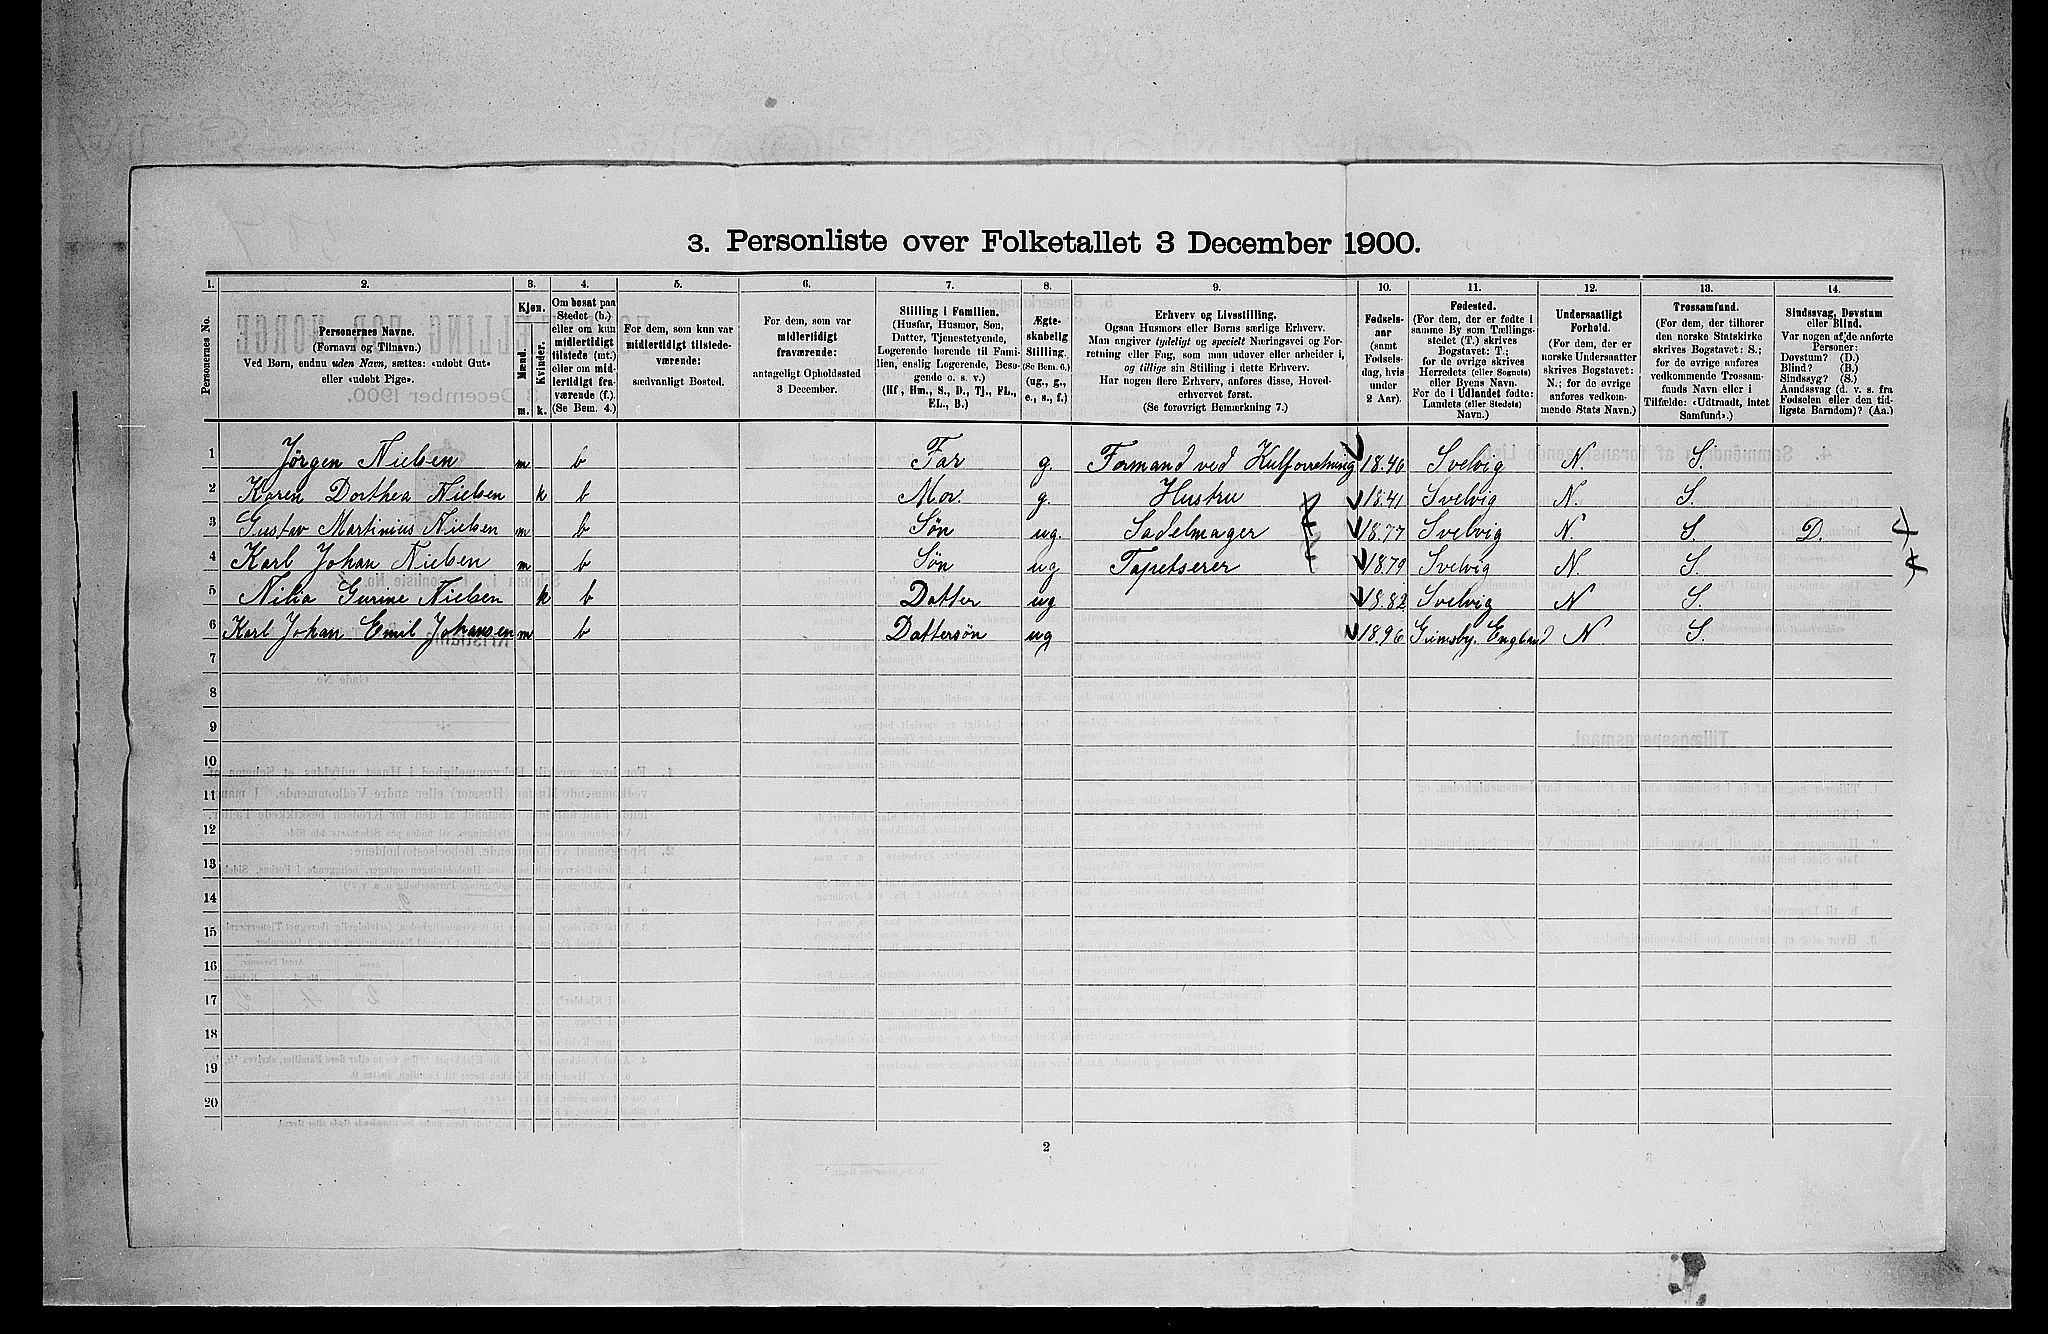 3. Personliste over Folketallet 3 December 1900.
1. 2. 3. 4. 5. 6. 7. 8. 9. 10. 11. 12. 13. 14.
Personernes No.
Personernes Navne.
(Fornavn og Tilnavn.)
Ved Børn, endnu uden Navn, sættes: «udøbt Gut»
eller «udøbt Pige».
Kjøn.
Mænd.
Kvinder.
m. k.
Om bosat paa
Stedet (b.)
eller om kun
midlertidigt
tilstede (mt.)
eller om mid-
lertidigt fra-
værende (f.).
(Se Bem. 4.)
For dem, som kun var
midlertidigt tilstede-
værende:
sædvanligt Bosted.
For dem, som var
midlertidigt
fraværende:
antageligt Opholdssted
3 December.
Stilling i Familien.
(Husfar, Husmor, Søn,
Datter, Tjenestetyende,
Logerende hørende til Fami-
lien, enslig Logerende, Besø-
gende o. s. v.)
(Hf., Hm., S., D., Tj., FL.,
EL., B.)
Ægte-
skabelig
Stilling.
(Se Bem. 6.)
(ug., g.,
e., s., f.)
Erhverv og Livsstilling.
Ogsaa Husmors eller Børns særlige Erhverv.
Man angiver tydeligt og specielt Næringsvei og For-
retning eller Fag, som man udøver eller arbeider i,
og tillige sin Stilling i dette Erhverv.
Har nogen flere Erhverv, anføres disse, Hoved-
erhvervet først.
(Se forøvrigt Bemærkning 7.)
Fødsels-
aar
(samt
Fødsels-
dag, hvis
under
2 Aar).
Fødested.
(For dem, der er fødte i
samme By som Tællings-
stedet (T.) skrives
Bogstavet: T.;
for de øvrige skrives
Herredets (eller Sognets)
eller Byens Navn.
For de i Udlandet fødte:
Landets (eller Stedets)
Navn.)
Undersaatligt
Forhold.
(For dem, der er
norske Undersaatter
skrives Bogstavet:
N.; for de øvrige
anføres vedkom-
mende Stats Navn.)
Trossamfund.
(For dem, der tilhører
den norske Statskirke
skrives Bogstavet: S.;
for de øvrige anføres
vedkommende Trossam-
funds Navn eller i
Tilfælde: «Udtraadt, intet
Samfund».)
Sindssvag, Døvstum
eller Blind.
Var nogen af de anførte
Personer:
Døvstum? (D.)
Blind? (B.)
Sindssyg? (S.)
Aandssvag (d. v. s. fra
Fødselen eller den tid-
ligste Barndom)? (Aa.)
1 Jørgen Nielsen m b Far g. Formand ved Kulforretning 1840 Svelvig N. S.
2 Karen Dorthea Nielsen k b Mor. g. Hustru 1841 Svelvig N. S.
3 Gustav Martinius Nielsen m b Søn ug. Sadelmager 1877 Svelvig N. S. D.
4 Karl Johan Nielsen m b Søn ug Tapetserer 1879 Svelvig N. S.
5 Nilia Gurine Nielsen k b Datter ug 1882 Svelvig N S.
6 Karl Johan Emil Johansen m b Dattersøn ug 1896 Grimsby. England N S.
7
8
9
10
11
12
13
14
15
16
17
18
19
20
2